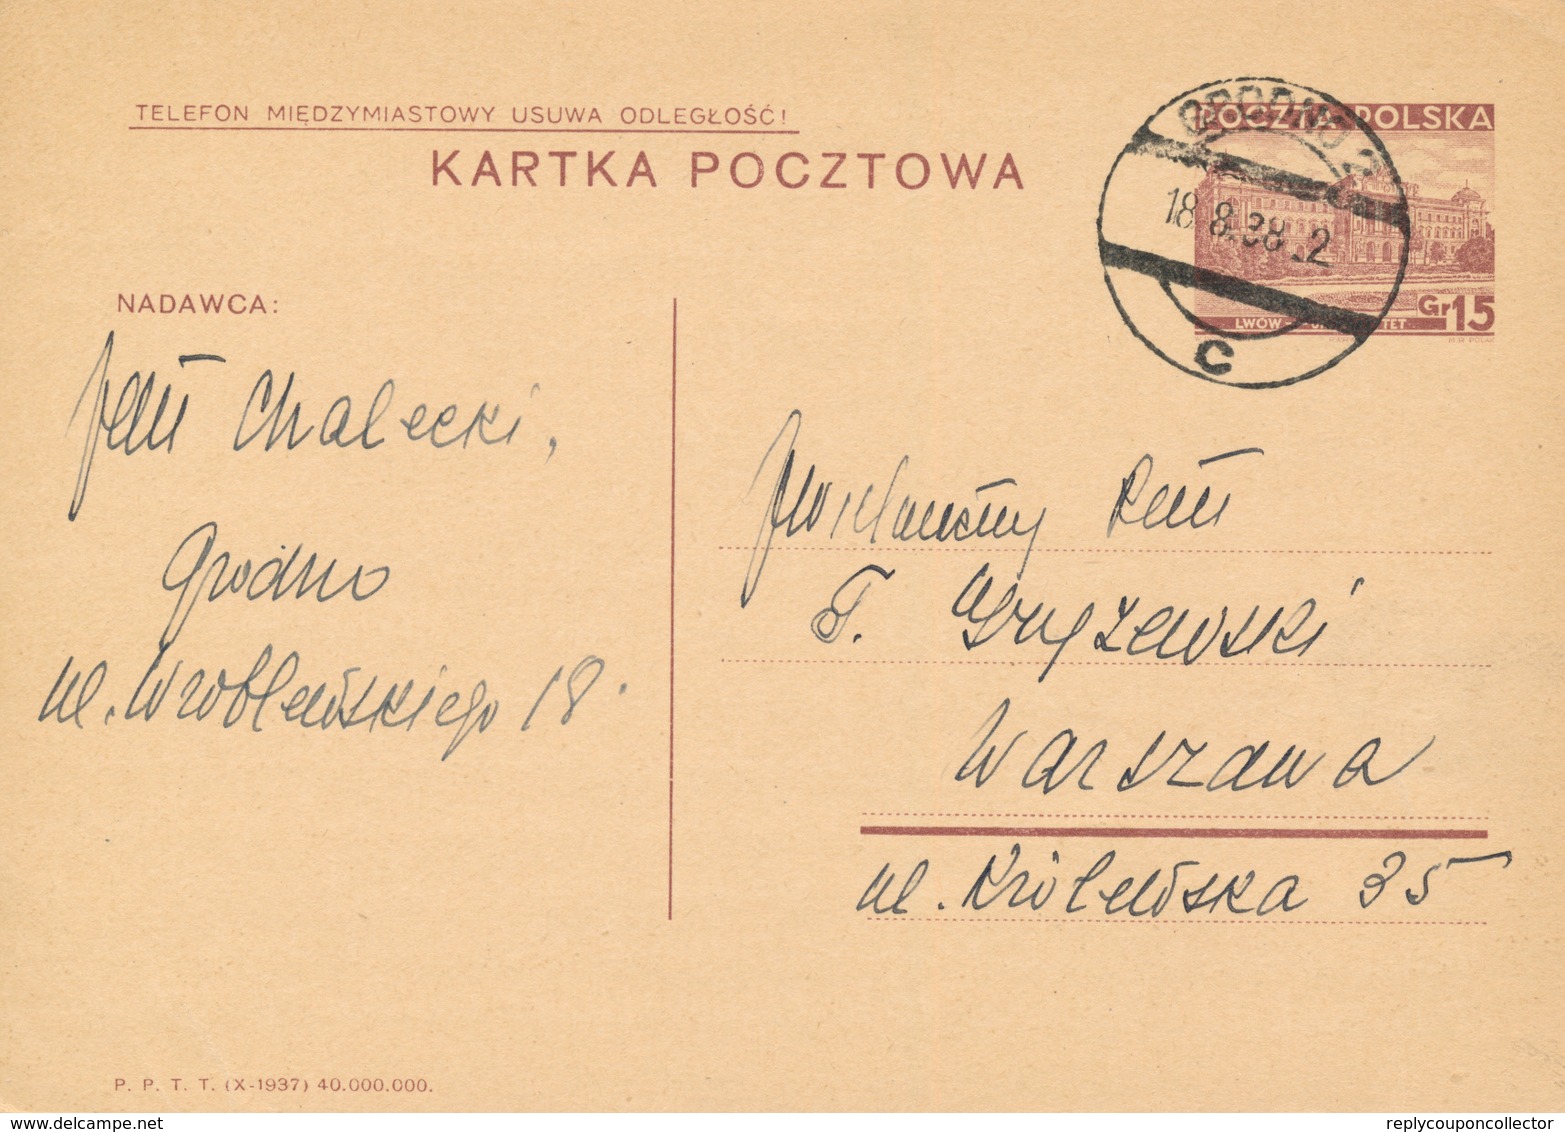 TELEFON MIĘDZYMIASTOWY USUWA ODLEGŁOŚĆ!
KARTKA POCZTOWA
POCZTA POLSKA
GRODNO 2
18.8.38.12
c
Gr 15
LWÓW
NADAWCA:
Jan Chalecki,
Grodno
ul. Wróblewskiego 18.
Pan
F. Gryżewski
Warszawa
ul. Królewska 35
P. P. T. T. (X-1937) 40.000.000.
delcampe.net
replycouponcollector